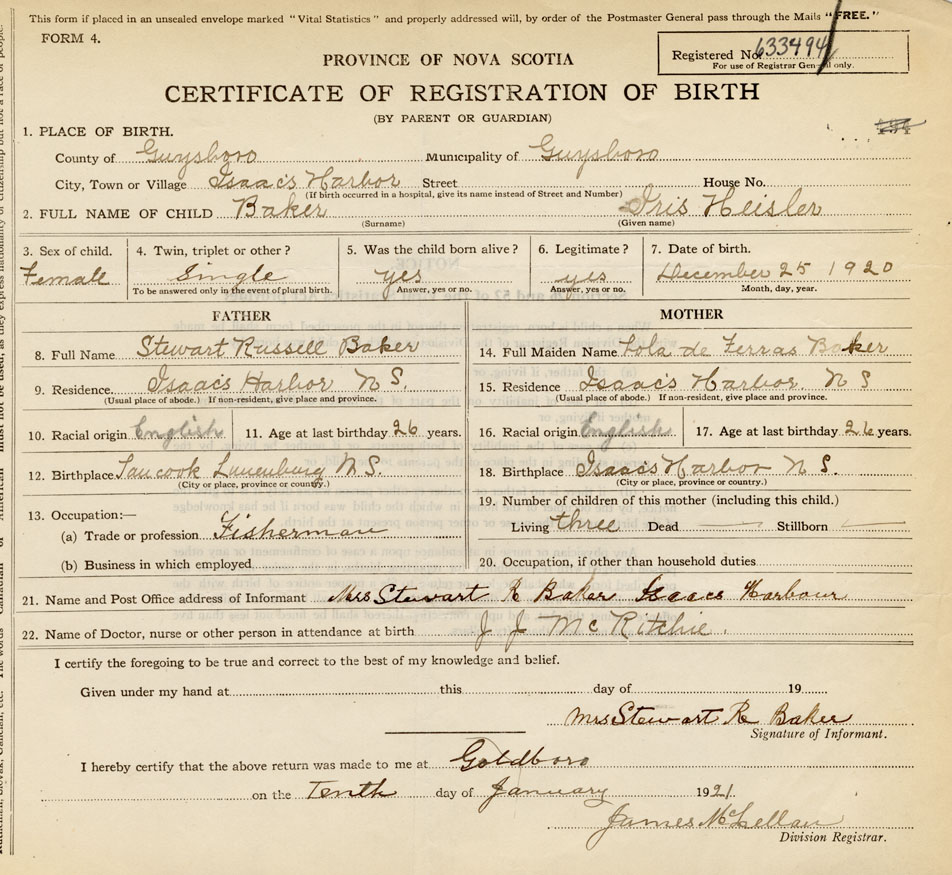 This form if placed in an unsealed envelope marked "Vital Statistics" and properly addressed will, by order of the Postmaster General pass through the Mails "FREE."
FORM 4.
Registered No. 633494
For use of Registrar General only.
PROVINCE OF NOVA SCOTIA
CERTIFICATE OF REGISTRATION OF BIRTH
(BY PARENT OR GUARDIAN)
1. PLACE OF BIRTH.
County of Guysboro Municipality of Guysboro
City, Town or Village Isaac's Harbor Street House No.
(If birth occurred in a hospital, give its name instead of Street and Number)
2. FULL NAME OF CHILD Baker Iris Heisler
(Surname) (Given name)
3. Sex of child. 4. Twin, triplet or other? 5. Was the child born alive? 6. Legitimate? 7. Date of birth.
Female Single yes yes December 25 1920
To be answered only in the event of plural birth. Answer, yes or no. Answer, yes or no. Month, day, year.
FATHER
8. Full Name Stewart Russell Baker
9. Residence Isaacs Harbor N S.
(Usual place of abode.) If non-resident, give place and province.
10. Racial origin English 11. Age at last birthday 26 years.
12. Birthplace Tancook Lunenburg N S.
(City or place, province or country.)
13. Occupation:—
(a) Trade or profession Fisherman
(b) Business in which employed
MOTHER
14. Full Maiden Name Lola de Ferras Baker
15. Residence Isaac's Harbor. N S
(Usual place of abode.) If non-resident, give place and province.
16. Racial origin English 17. Age at last birthday 26 years.
18. Birthplace Isaac's Harbor N S.
(City or place, province or country.)
19. Number of children of this mother (including this child.)
Living three Dead — Stillborn —
20. Occupation, if other than household duties
21. Name and Post Office address of Informant Mrs Stewart R Baker Isaacs Harbour
22. Name of Doctor, nurse or other person in attendance at birth J J McRitchie.
I certify the foregoing to be true and correct to the best of my knowledge and belief.
Given under my hand at this day of 19
Mrs Stewart R Baker
Signature of Informant.
I hereby certify that the above return was made to me at Goldboro
on the Tenth day of January 1921.
James McLellan
Division Registrar.